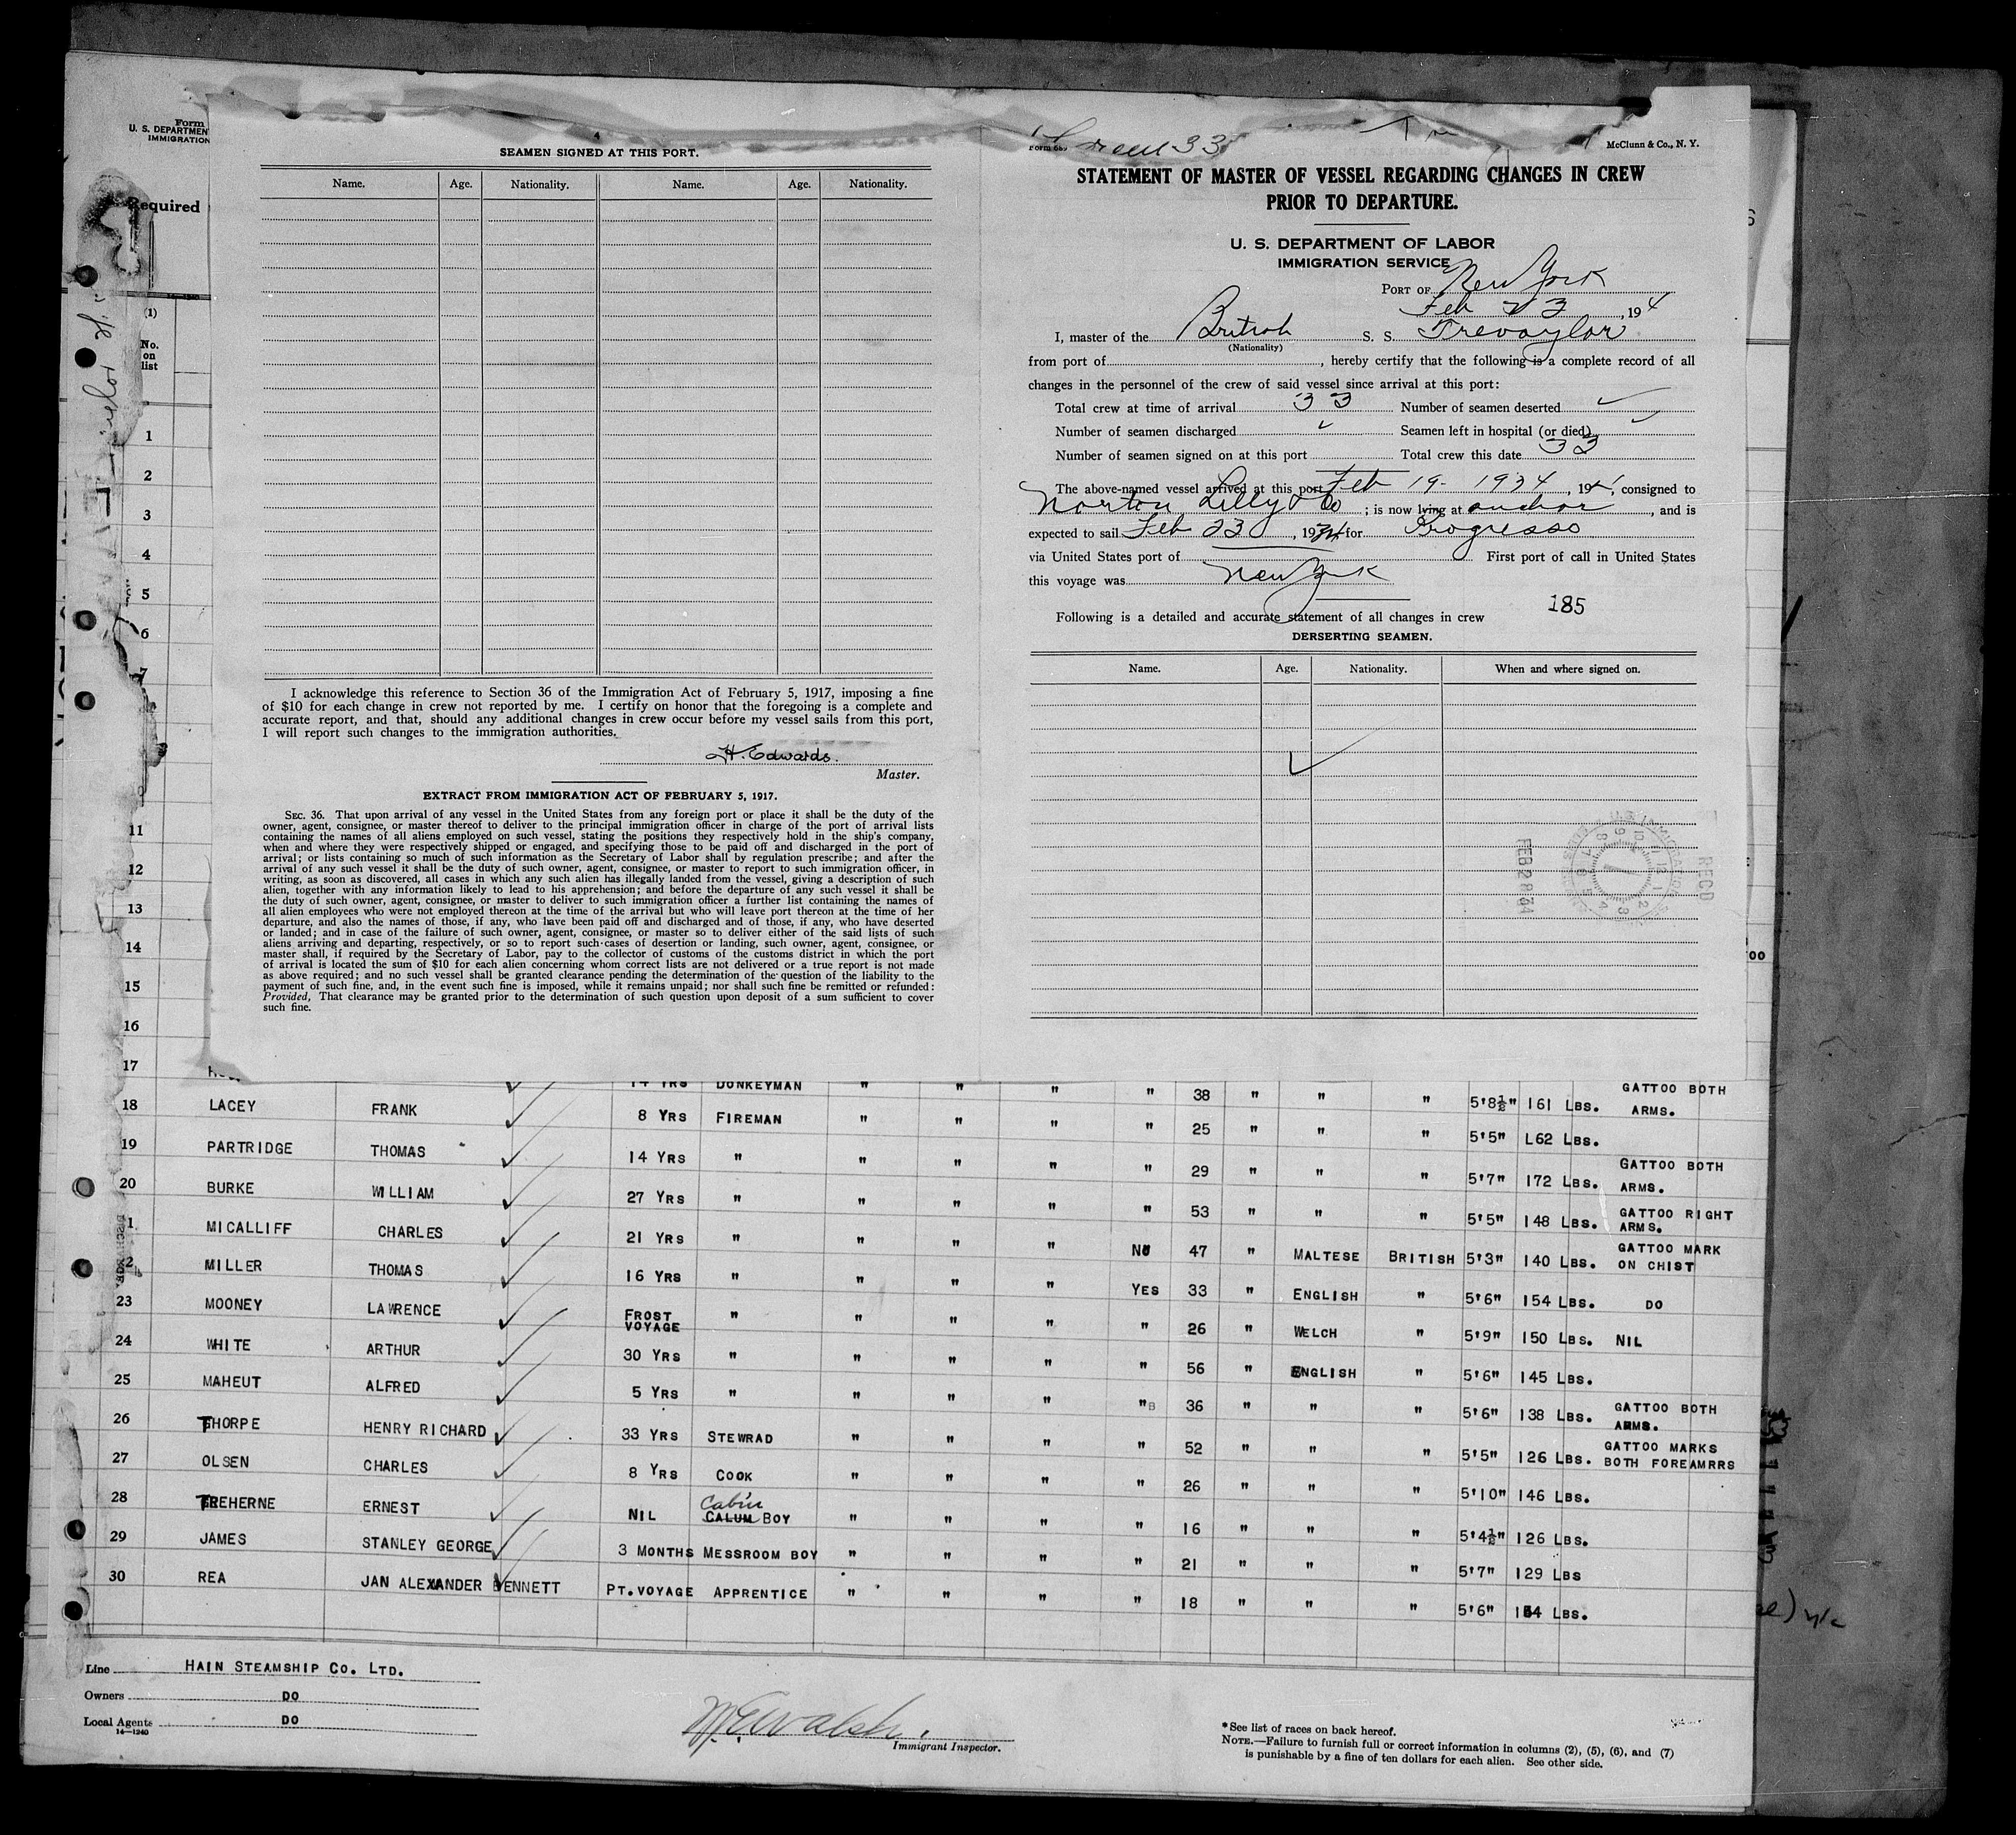 Form
U. S. DEPARTMEN
IMMIGRATION
Required
(1)
No.
on
list
1
2
3
4
5
6
7
11
12
13
14
15
16
17
4
SEAMEN SIGNED AT THIS PORT.
Name. Age. Nationality. Name. Age. Nationality.
I acknowledge this reference to Section 36 of the Immigration Act of February 5, 1917, imposing a fine
of $10 for each change in crew not reported by me. I certify on honor that the foregoing is a complete and
accurate report, and that, should any additional changes in crew occur before my vessel sails from this port,
I will report such changes to the immigration authorities.
H. Edwards.
Master.
EXTRACT FROM IMMIGRATION ACT OF FEBRUARY 5, 1917.
SEC. 36. That upon arrival of any vessel in the United States from any foreign port or place it shall be the duty of the
owner, agent, consignee, or master thereof to deliver to the principal immigration officer in charge of the port of arrival lists
containing the names of all aliens employed on such vessel, stating the positions they respectively hold in the ship's company,
when and where they were respectively shipped or engaged, and specifying those to be paid off and discharged in the port of
arrival; or lists containing so much of such information as the Secretary of Labor shall by regulation prescribe; and after the
arrival of any such vessel it shall be the duty of such owner, agent, consignee, or master to report to such immigration officer, in
writing, as soon as discovered, all cases in which any such alien has illegally landed from the vessel, giving a description of such
alien, together with any information likely to lead to his apprehension; and before the departure of any such vessel it shall be
the duty of such owner, agent, consignee, or master to deliver to such immigration officer a further list containing the names of
all alien employees who were not employed thereon at the time of the arrival but who will leave port thereon at the time of her
departure, and also the names of those, if any, who have been paid off and discharged and of those, if any, who have deserted
or landed; and in case of the failure of such owner, agent, consignee, or master so to deliver either of the said lists of such
aliens arriving and departing, respectively, or so to report such cases of desertion or landing, such owner, agent, consignee, or
master shall, if required by the Secretary of Labor, pay to the collector of customs of the customs district in which the port
of arrival is located the sum of $10 for each alien concerning whom correct lists are not delivered or a true report is not made
as above required; and no such vessel shall be granted clearance pending the determination of the question of the liability to the
payment of such fine, and, in the event such fine is imposed, while it remains unpaid; nor shall such fine be remitted or refunded:
Provided, That clearance may be granted prior to the determination of such question upon deposit of a sum sufficient to cover
such fine.
33
McClunn & Co., N. Y.
STATEMENT OF MASTER OF VESSEL REGARDING CHANGES IN CREW
PRIOR TO DEPARTURE.
U. S. DEPARTMENT OF LABOR
IMMIGRATION SERVICE
PORT OF New York
Feb 23, 194
I, master of the British S. S. Trevaylor
(Nationality)
from port of , hereby certify that the following is a complete record of all
changes in the personnel of the crew of said vessel since arrival at this port:
Total crew at time of arrival 33 Number of seamen deserted ✓
Number of seamen discharged ✓ Seamen left in hospital (or died) ✓
Number of seamen signed on at this port Total crew this date 33
The above-named vessel arrived at this port Feb 19 - 1934, 19 , consigned to
Norton Lilly & Co ; is now lying at anchor, and is
expected to sail Feb 23, 1934 for Progresso
via United States port of First port of call in United States
this voyage was New York
185
Following is a detailed and accurate statement of all changes in crew
DERSERTING SEAMEN.
Name. Age. Nationality. When and where signed on.
✓
RECD
U.S. IMMIGRATION
FEB 28 '34
14 YRS DONKEYMAN " " " " 38 " " " 5'8½" 161 LBS. GATTOO BOTH ARMS.
18 LACEY FRANK ✓ 8 YRS FIREMAN " " " " 25 " " " 5'5" L62 LBS.
19 PARTRIDGE THOMAS ✓ 14 YRS " " " " " 29 " " " 5'7" 172 LBS. GATTOO BOTH ARMS.
20 BURKE WILLIAM ✓ 27 YRS " " " " " 53 " " " 5'5" 148 LBS. GATTOO RIGHT ARMS.
1 MICALLIFF CHARLES ✓ 21 YRS " " " " NO 47 " MALTESE BRITISH 5'3" 140 LBS. GATTOO MARK ON CHIST
2 MILLER THOMAS ✓ 16 YRS " " " " YES 33 " ENGLISH " 5'6" 154 LBS. DO
23 MOONEY LAWRENCE ✓ FROST VOYAGE " " " " " 26 " WELCH " 5'9" 150 LBS. NIL
24 WHITE ARTHUR ✓ 30 YRS " " " " " 56 " ENGLISH " 5'6" 145 LBS.
25 MAHEUT ALFRED ✓ 5 YRS " " " " "B 36 " " " 5'6" 138 LBS. GATTOO BOTH ARMS.
26 THORPE HENRY RICHARD ✓ 33 YRS STEWRAD " " " " 52 " " " 5'5" 126 LBS. GATTOO MARKS BOTH FOREAMRRS
27 OLSEN CHARLES ✓ 8 YRS COOK " " " " 26 " " " 5'10" 146 LBS.
28 TREHERNE ERNEST ✓ NIL CALUM Cabin BOY " " " " 16 " " " 5'4½" 126 LBS.
29 JAMES STANLEY GEORGE ✓ 3 MONTHS MESSROOM BOY " " " " 21 " " " 5'7" 129 LBS
30 REA JAN ALEXANDER BENNETT ✓ PT.VOYAGE APPRENTICE " " " " 18 " " " 5'6" 154 LBS.
Line HAIN STEAMSHIP CO. LTD.
Owners DO
Local Agents DO
14—1240
W. E. Walsh.
Immigrant Inspector.
*See list of races on back hereof.
NOTE.—Failure to furnish full or correct information in columns (2), (5), (6), and (7)
is punishable by a fine of ten dollars for each alien. See other side.